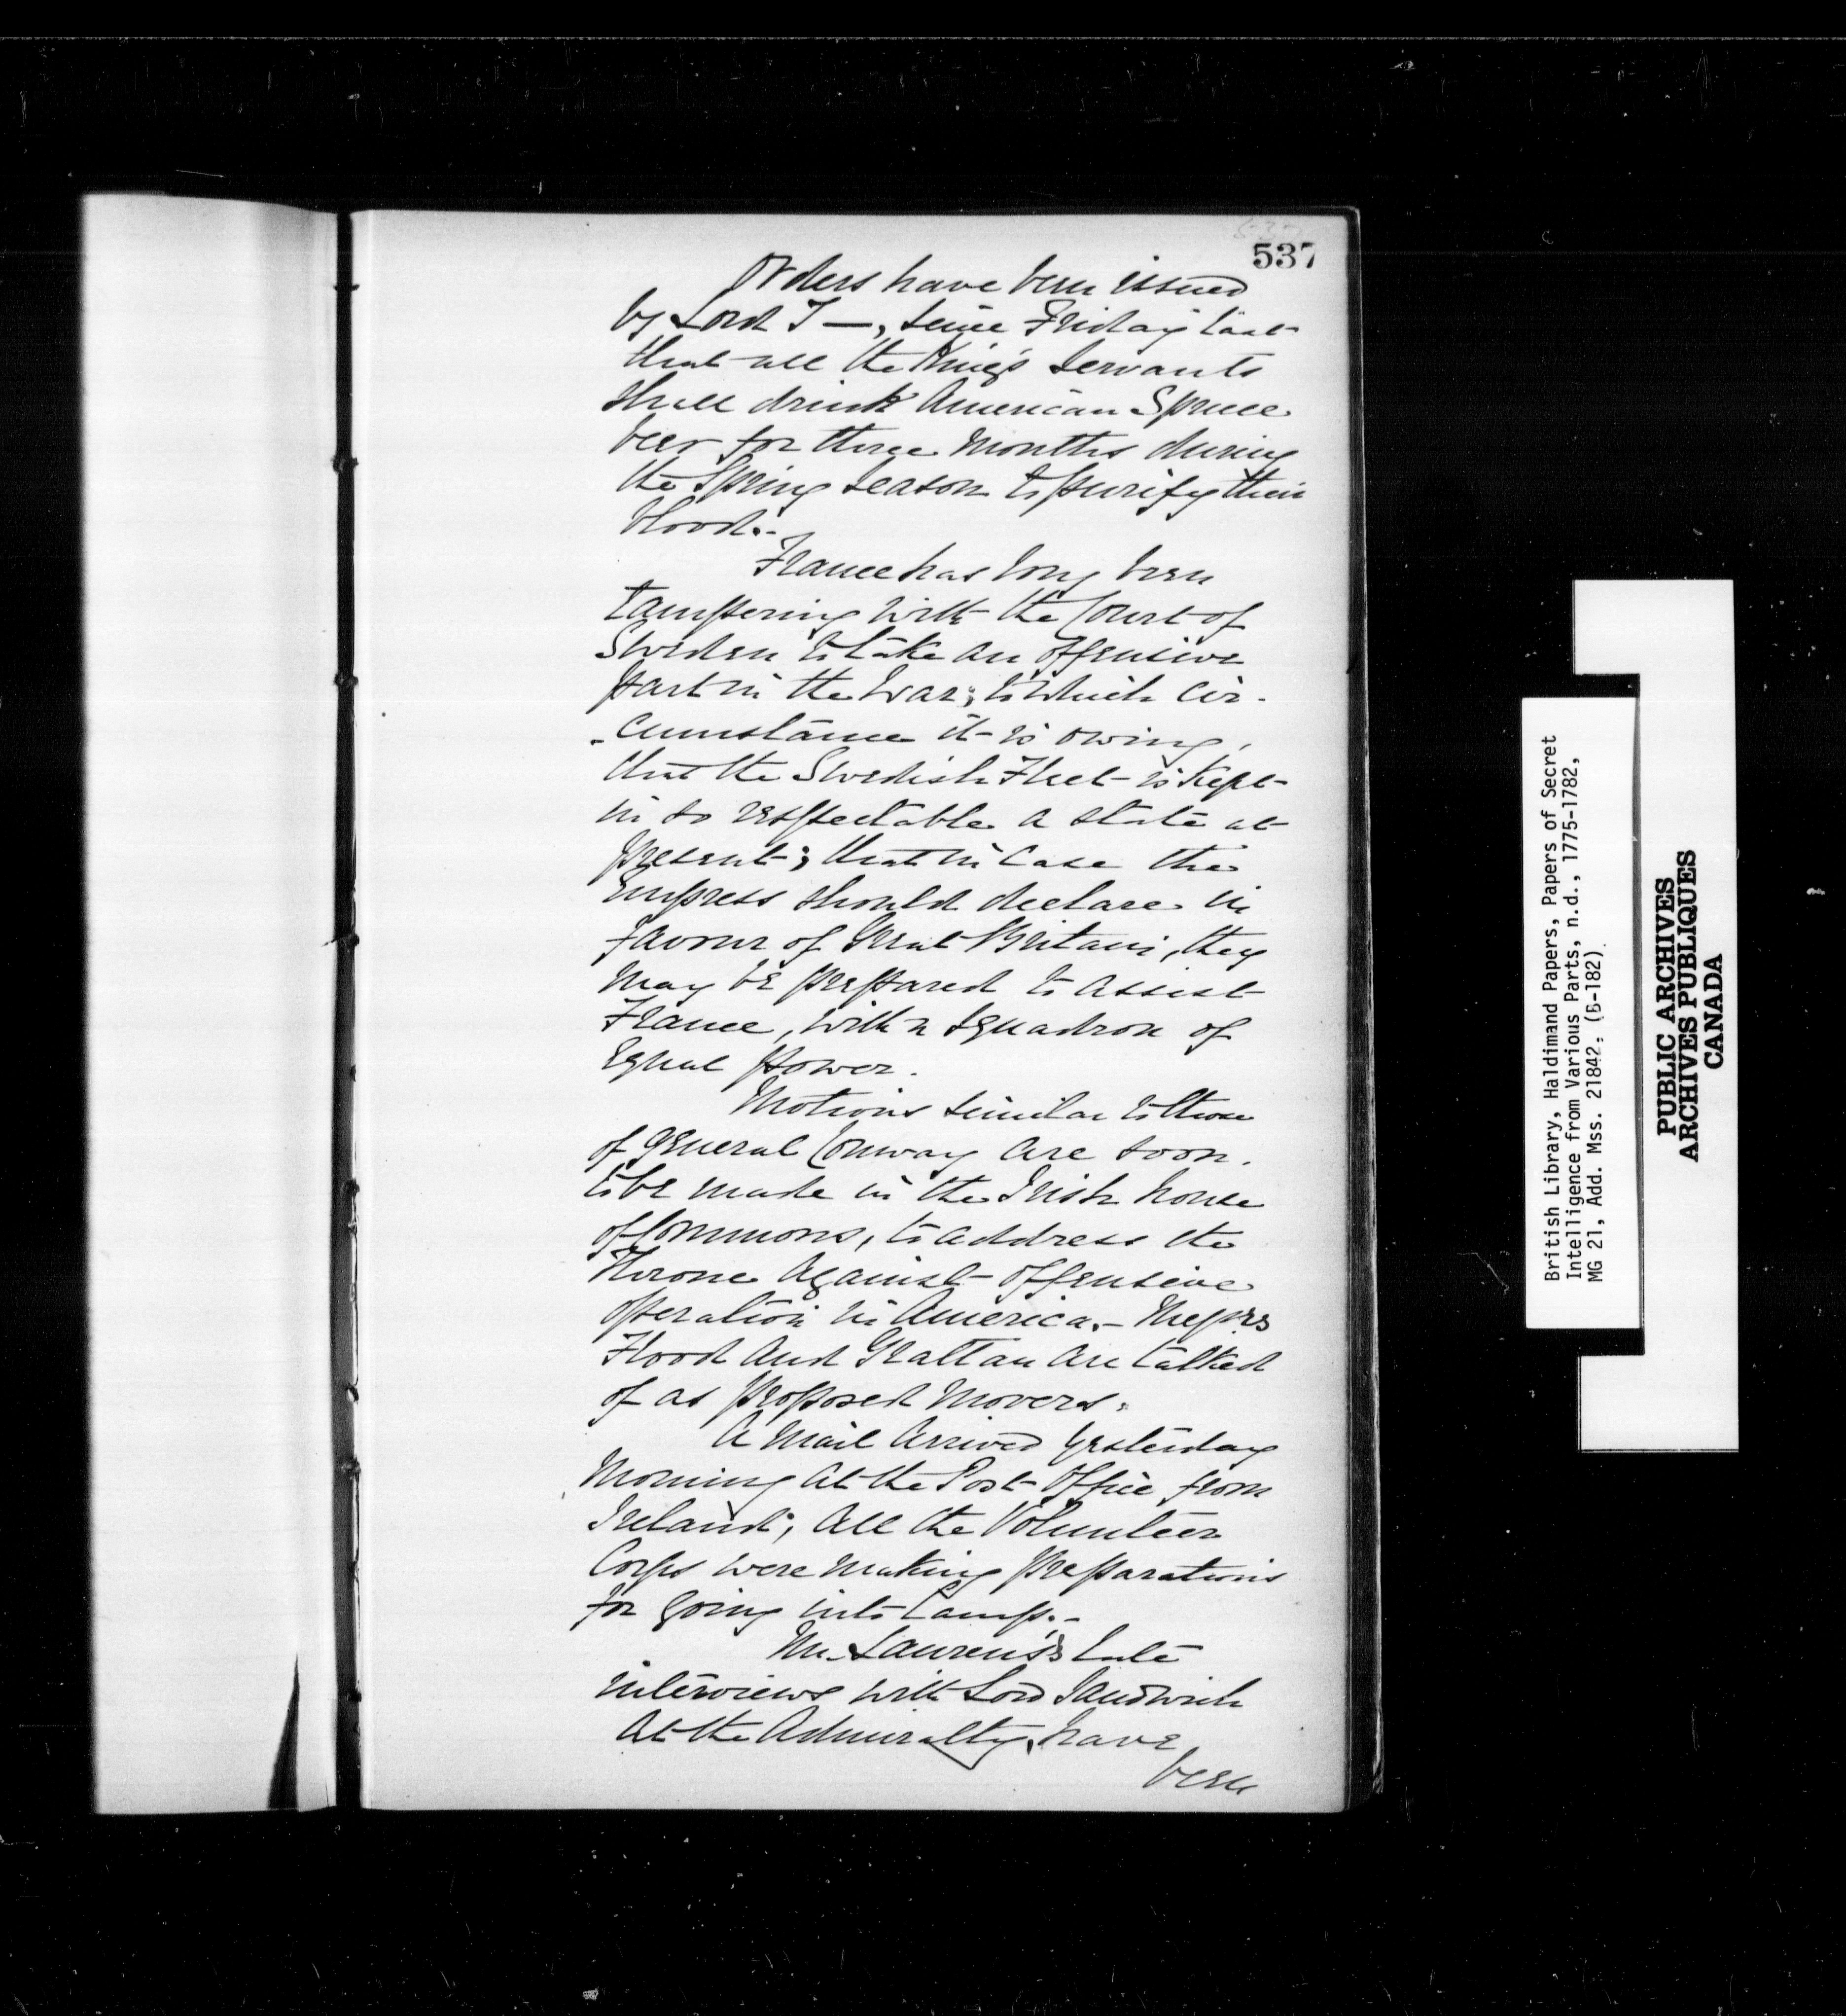 537
Orders have been issued
by Lord T—, since Friday last
that all the King's Servants
shall drink American Spruce
beer for three Months during
the Spring Season to purify their
blood.-
France has long been
tampering with the Court of
Sweden to take an offensive
part in the War; to which cir-
-cumstance it is owing,
that the Swedish Fleet is kept
in so respectable a state at
present; that in case the
Empress should declare in
favour of Great Britain, they
may be prepared to assist
France, with a Squadron of
equal power.
Motions similar to those
of General Conway are soon
to be made in the Irish house
of Commons, to address the
Throne against offensive
operation in America.- Messrs
Flood and Grattan are talked
of as proposed Movers.
A Mail arrived yesterday
Morning at the Post Office from
Ireland; all the Volunteer
Corps were making preparations
for going into Camp.-
Mr. Laurens's late
interviews with Lord Sandwich
at the Admiralty, have
been
British Library, Haldimand Papers, Papers of Secret
Intelligence from Various Parts, n.d., 1775-1782,
MG 21, Add. Mss. 21842, (B-182)
PUBLIC ARCHIVES
ARCHIVES PUBLIQUES
CANADA